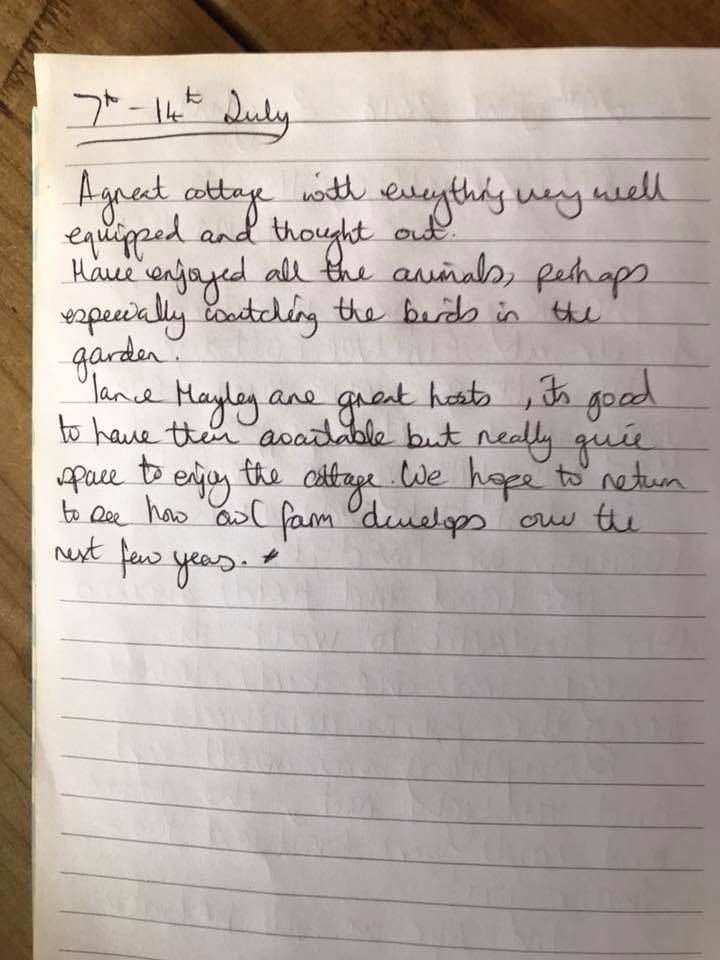 7th - 14th July
A great cottage with everything very well
equipped and thought out.
Have enjoyed all the animals, perhaps
especially watching the birds in the
garden.
Hayley are great hosts, Its good
to have them available but really give
space to enjoy the cottage. We hope to return
to see how owl farm develops over the
next few years. *